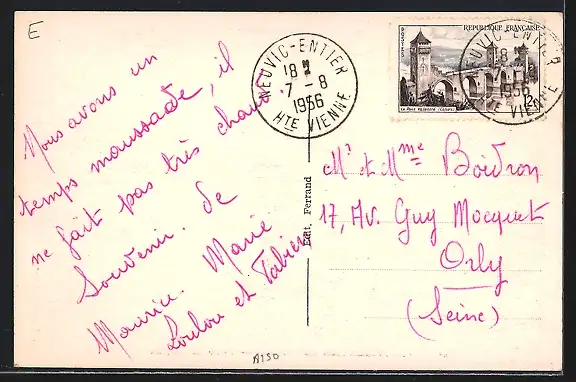 E
Nous avons un
temps maussade, il
ne fait pas très chaud.
Souvenir. de
Maurice. Marie
Loulou et Fabien
NEUVIC-ENTIER
18 H
7-8
1956
HTE VIENNE
REPUBLIQUE FRANÇAISE
POSTES
12F
NEUVIC-ENTIER
18
1956
HTE VIENNE
Mr et Mme Boidron
17, Av. Guy Mocquet
Orly
(Seine)
Edit. Ferrand
A150